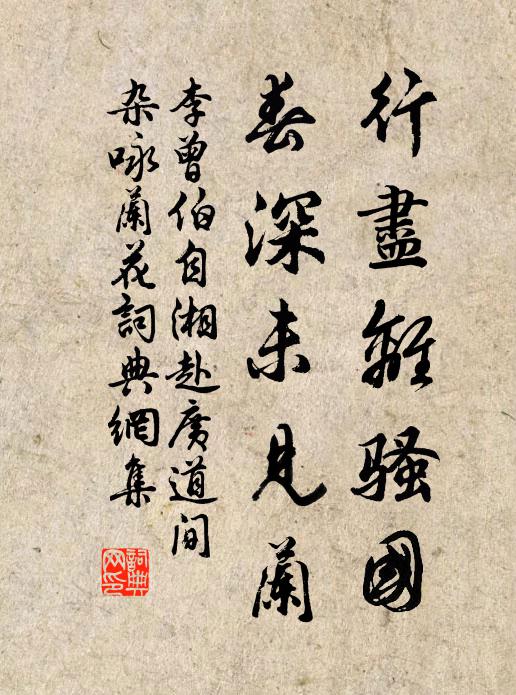 行盡離騷國
春深未見蘭
李曾伯自湘赴广道间
杂咏蘭花詞典網集
詞典網印